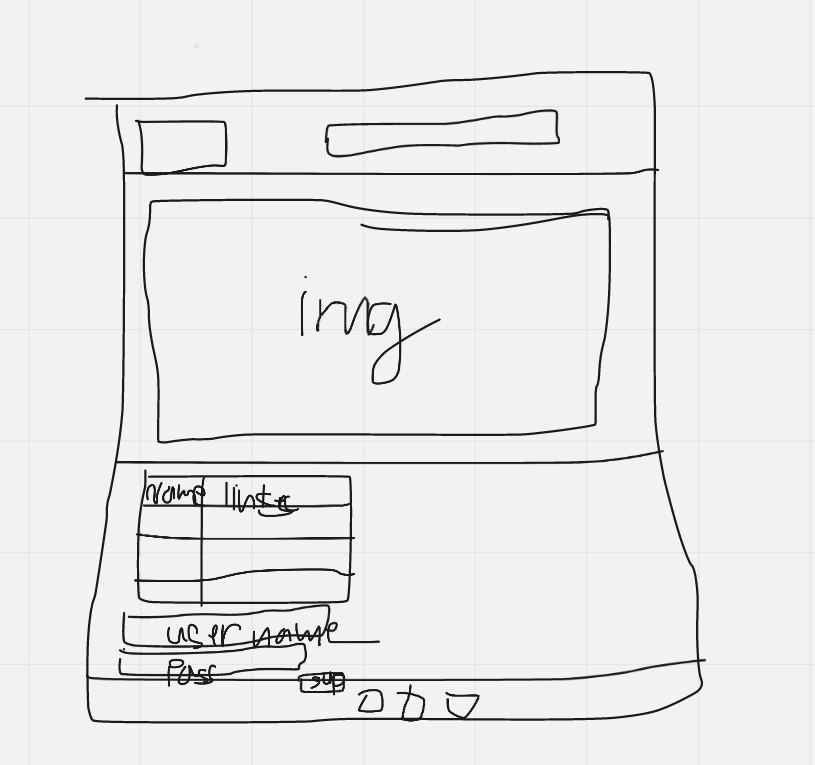 img
Name links
user name
Pass
sup